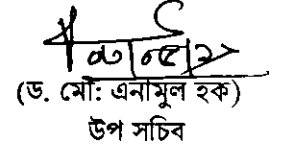 (ড. মোঃ এনামুল হক)
উপ সচিব